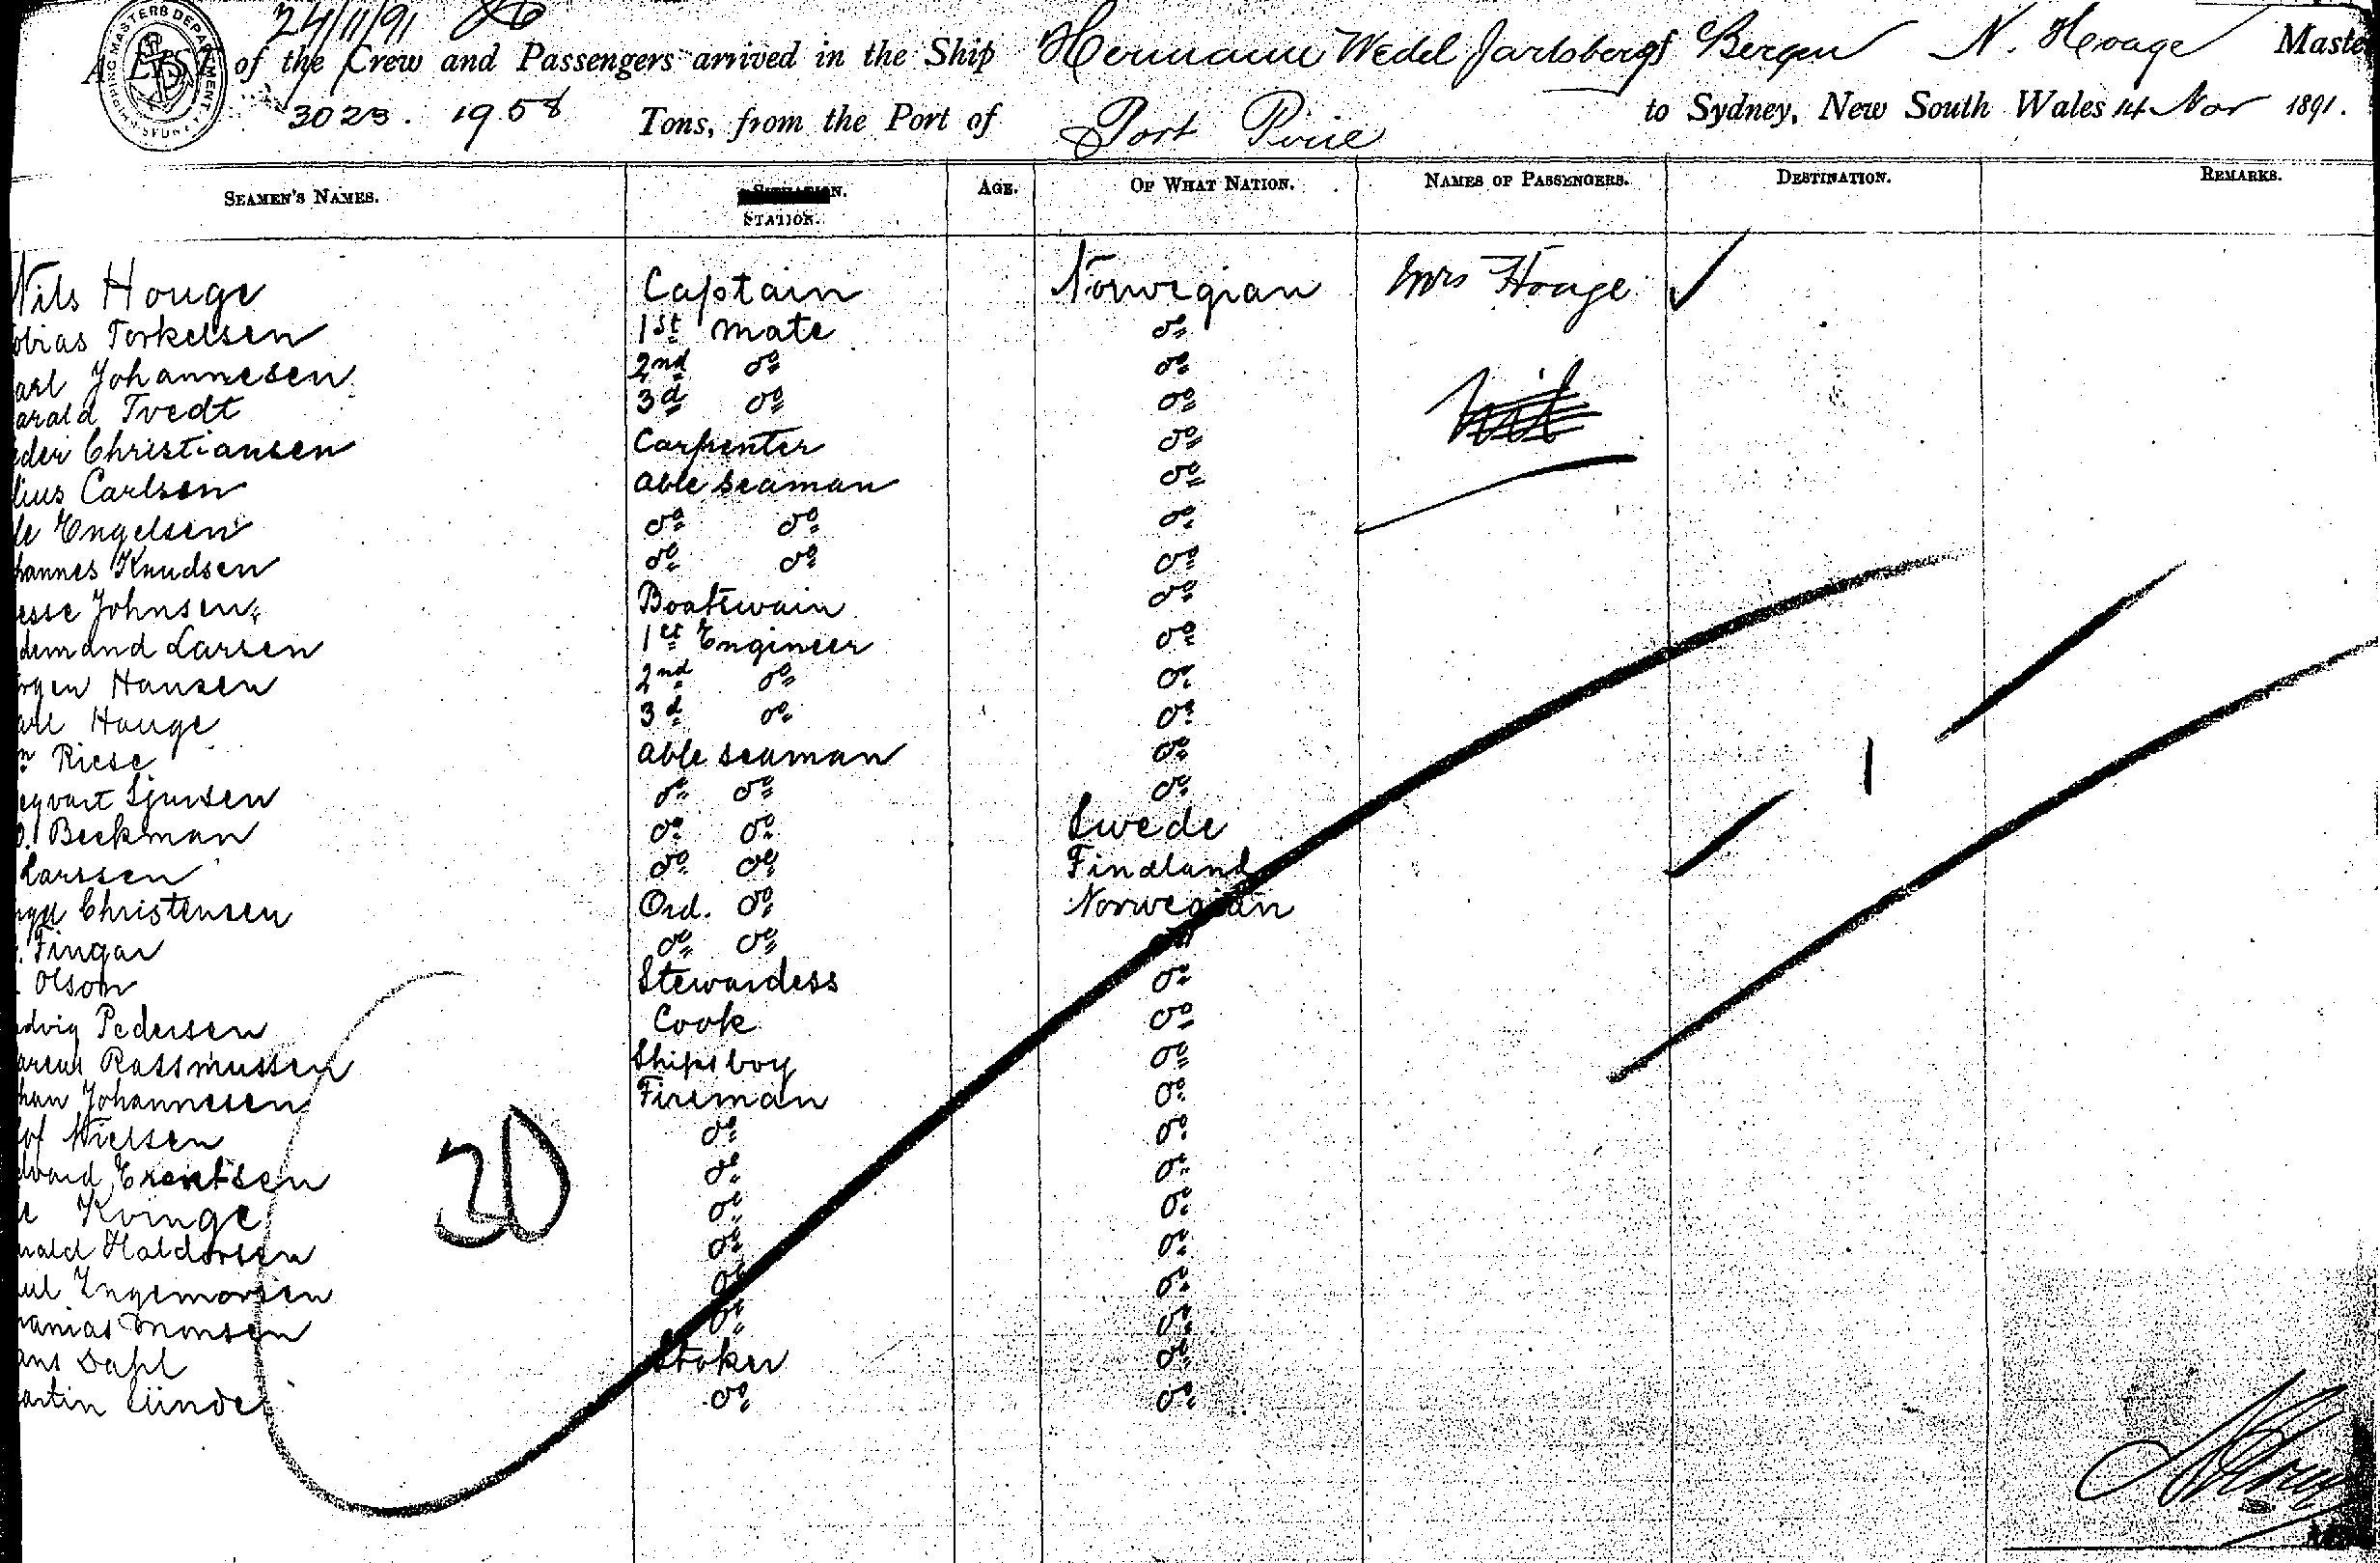 24/11/91
A List of the Crew and Passengers arrived in the Ship Hermann Wedel Jarlsberg of Bergen N. Houge Maste
3023. 1958 Tons, from the Port of Port Pirie to Sydney, New South Wales 14 Nov 1891.
SHIPPING MASTERS DEPARTMENT SYDNEY
SEAMEN'S NAMES. STATION. AGE. OF WHAT NATION. NAMES OF PASSENGERS. DESTINATION. REMARKS.
Nils Houge Captain Norwegian Mrs Houge
obias Torkelsen 1st mate do
arl Johannesen 2nd do do
arald Tvedt 3d do do nil
eder Christiansen Carpenter do
lius Carlsen able seaman do
le Engelsen do do do
hannes Knudsen do do do
esse Johnsen Boatswain do
demand Larsen 1st Engineer do
rgen Hansen 2nd do do
arl Houge 3d do do
n Riese able seaman do
egvart Sjursen do do do
O. Beckman do do Swede
Larssen do do Findland
Christensen Ord. do Norwegian
Fingar do do do
Olson Stewardess do
udvig Pedersen Cook do
arcus Rassmussen Ships boy do
han Johannesen Fireman do
lof Nielsen do do
dvard Exentsen do do
le Kvinge do do
nald Haldorsen do do
aul Ingemorsen do do
nanias Monsen do do
ans Dahl Stoker do
artin Lunde do do
30